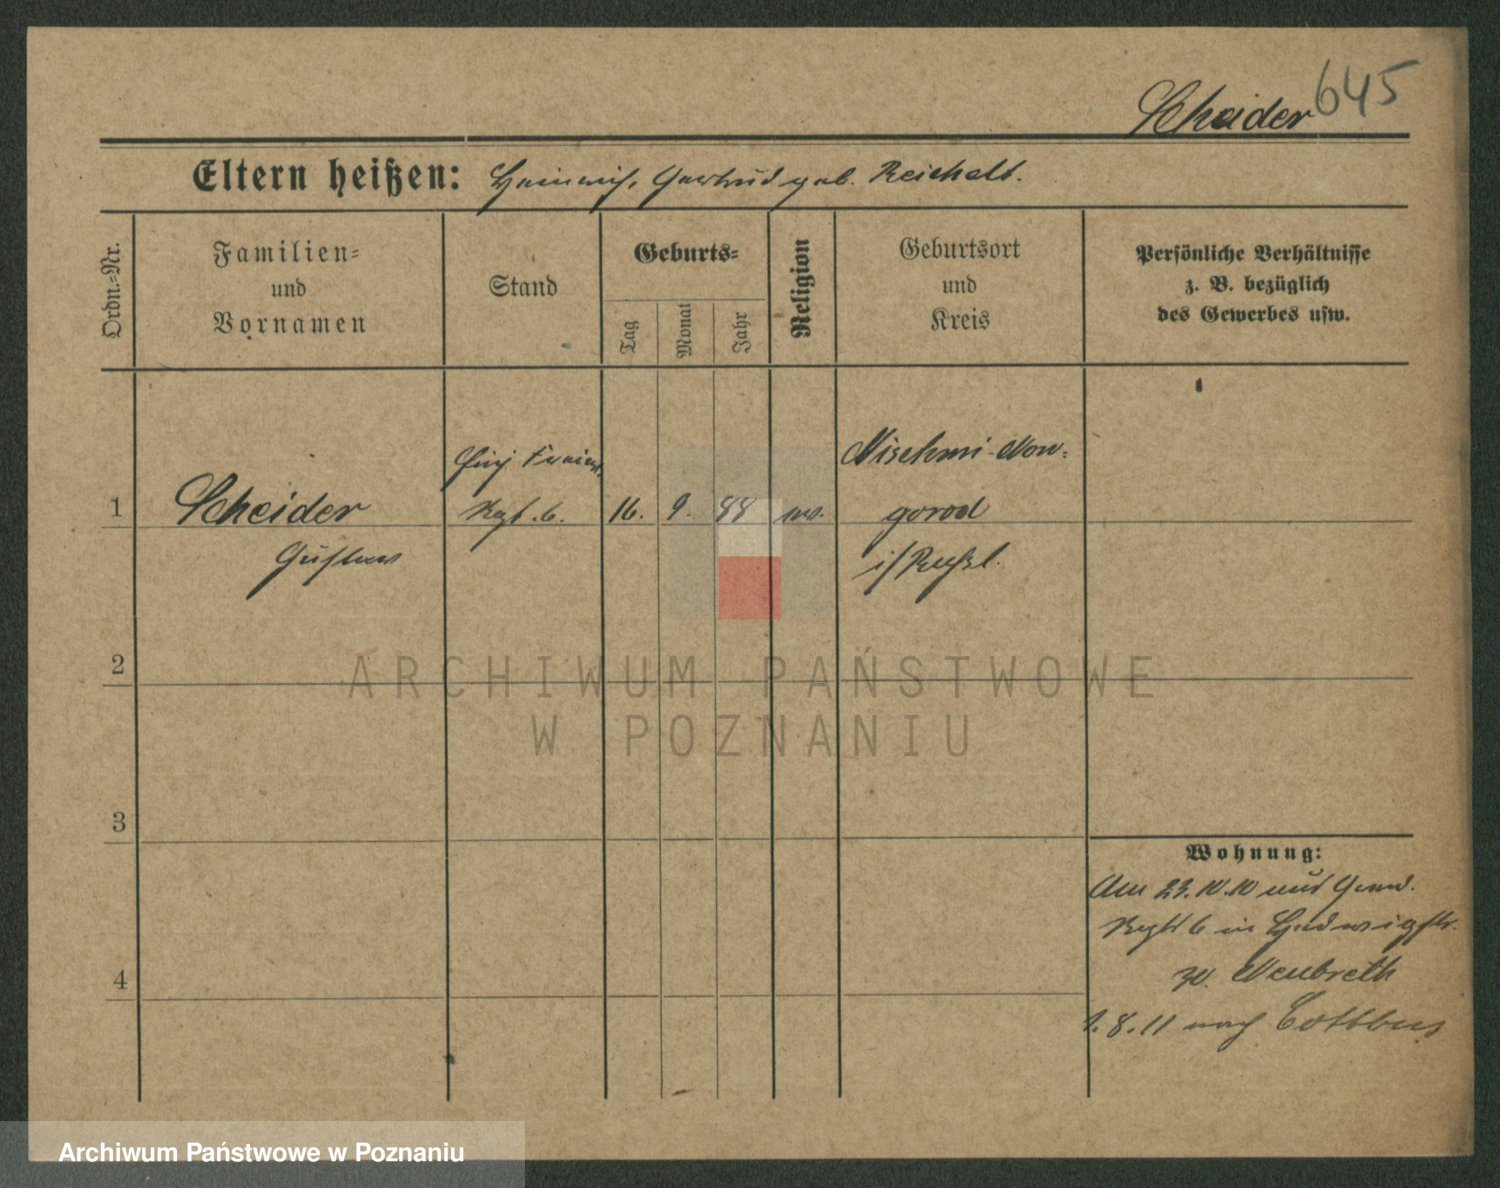 645
Scheider
Eltern heißen: Heinrich, Gertrud geb. Reichelt.
Ordn.=Nr.
Familien=
und
Vornamen
Stand
Geburts=
Tag
Monat
Jahr
Religion
Geburtsort
und
Kreis
Persönliche Verhältnisse
z. B. bezüglich
des Gewerbes usw.
1
Scheider
Gustav
Rgt. 6.
16. 9. 88
Nischni-Now=
gorod
i/Rußl.
2
3
4
Wohnung:
Am 23.10.10 Gren.
Rgt 6 in
zu.
1.8.11 nach Cottbus
ARCHIWUM PAŃSTWOWE
W POZNANIU
Archiwum Państwowe w Poznaniu